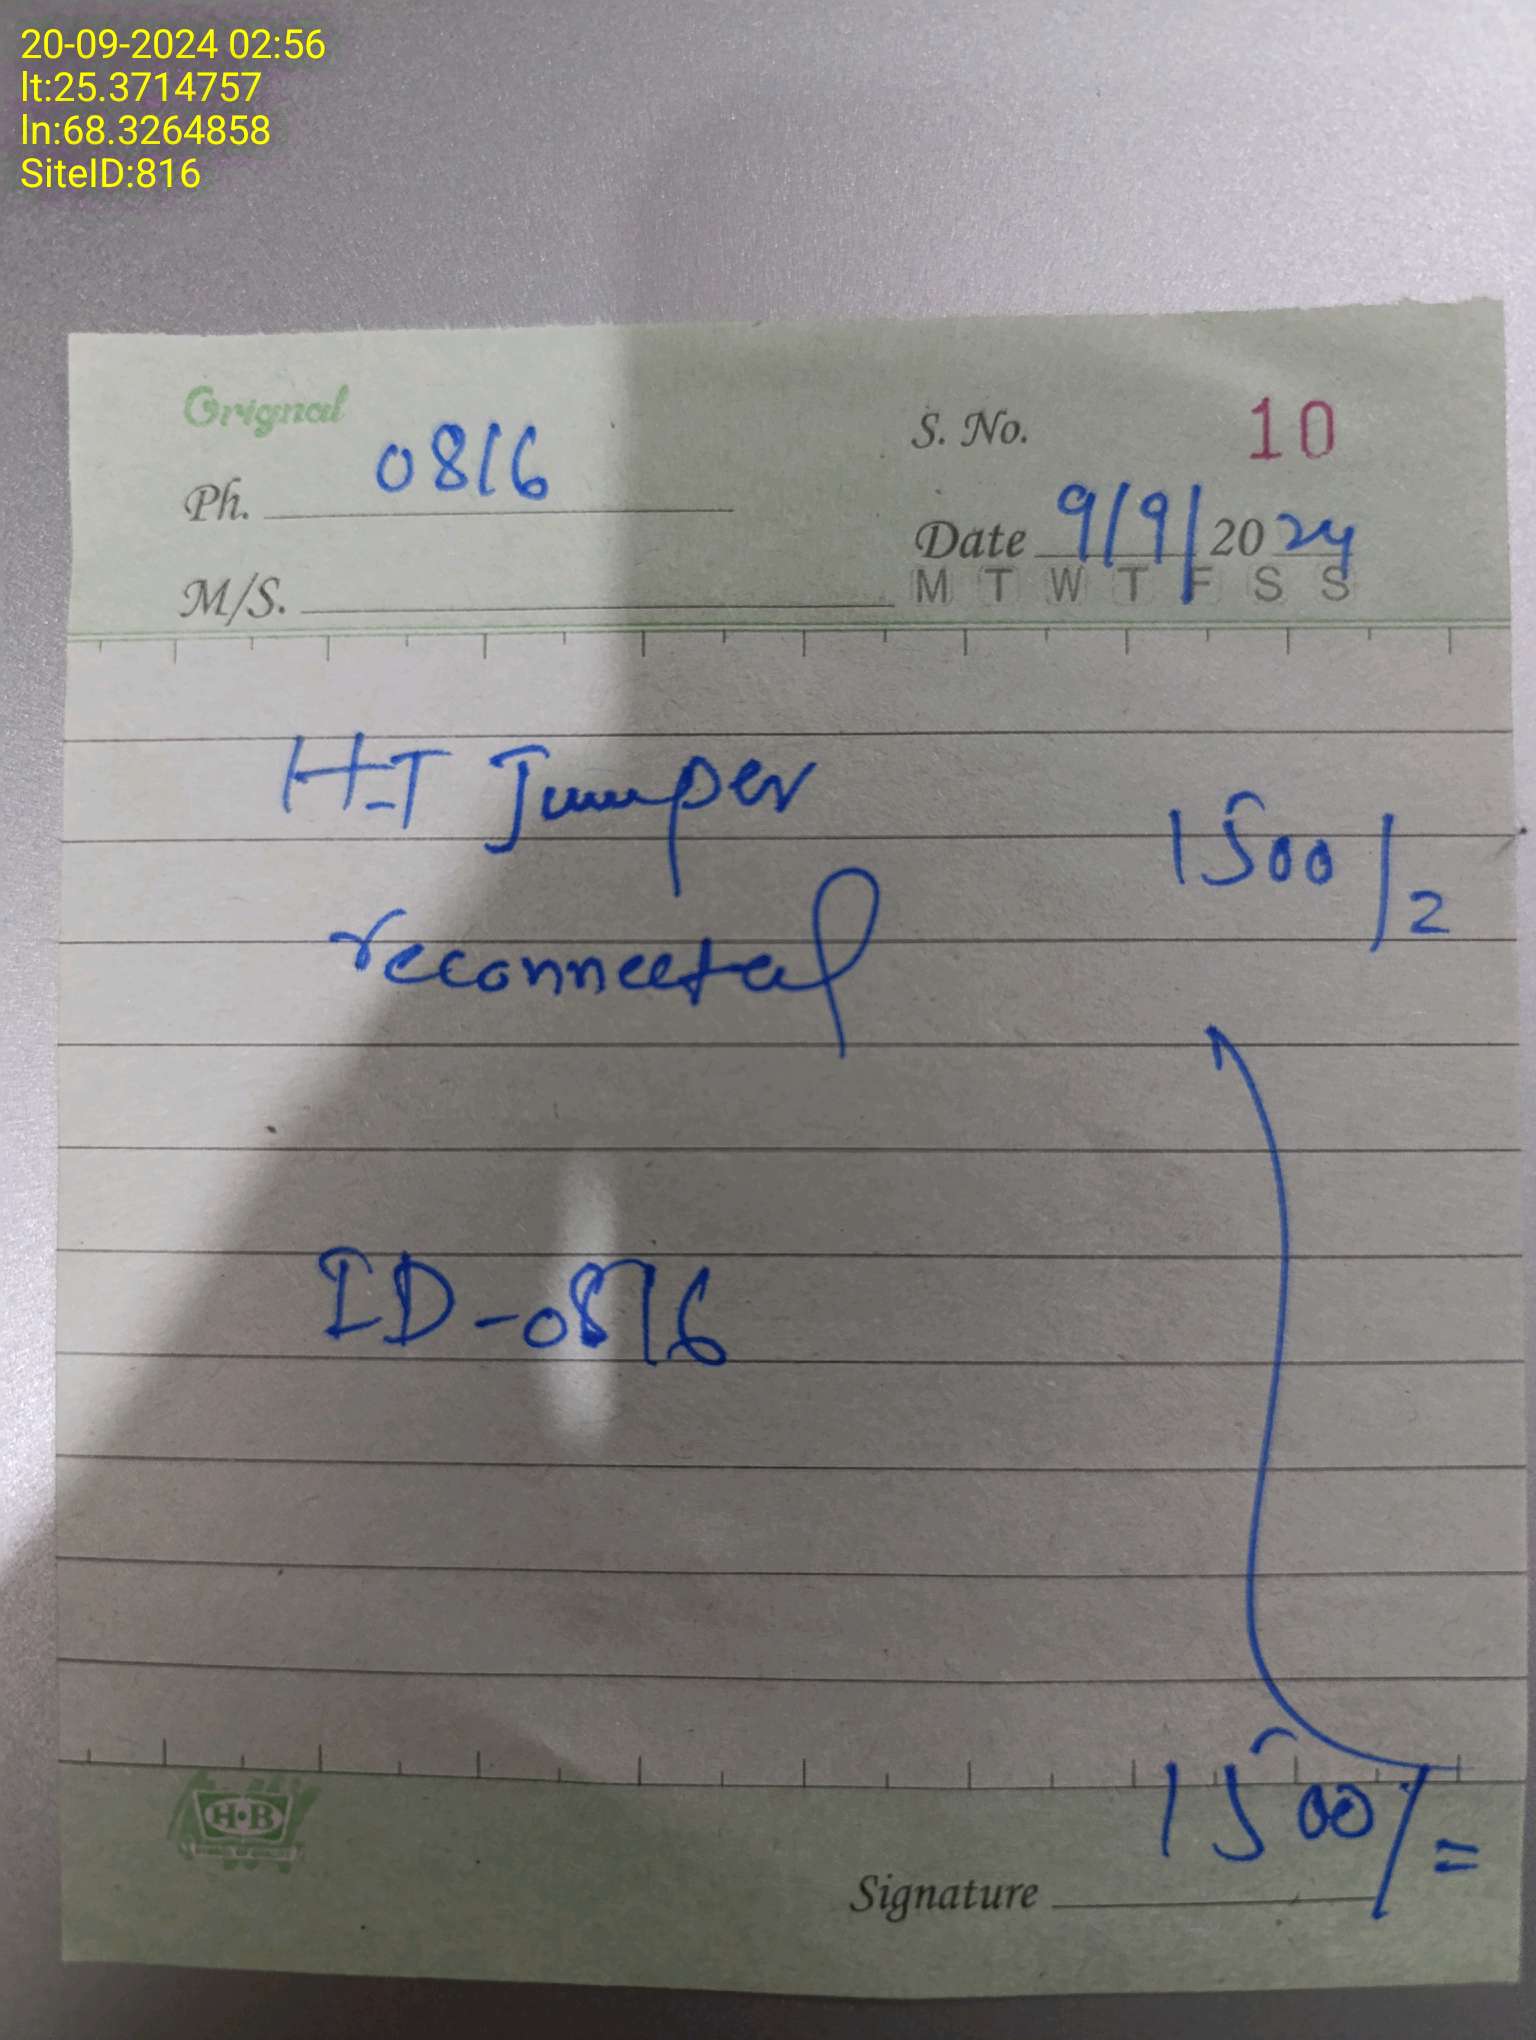 20-09-2024 02:56
lt:25.3714757
ln:68.3264858
SiteID:816
Orignal
S. No. 10
Ph. 0816
Date 9/9/2024
M/S.
M T W T F S S
H-T Jumper 1500/=
reconnected
ID-0816
1500/=
H·B
Signature